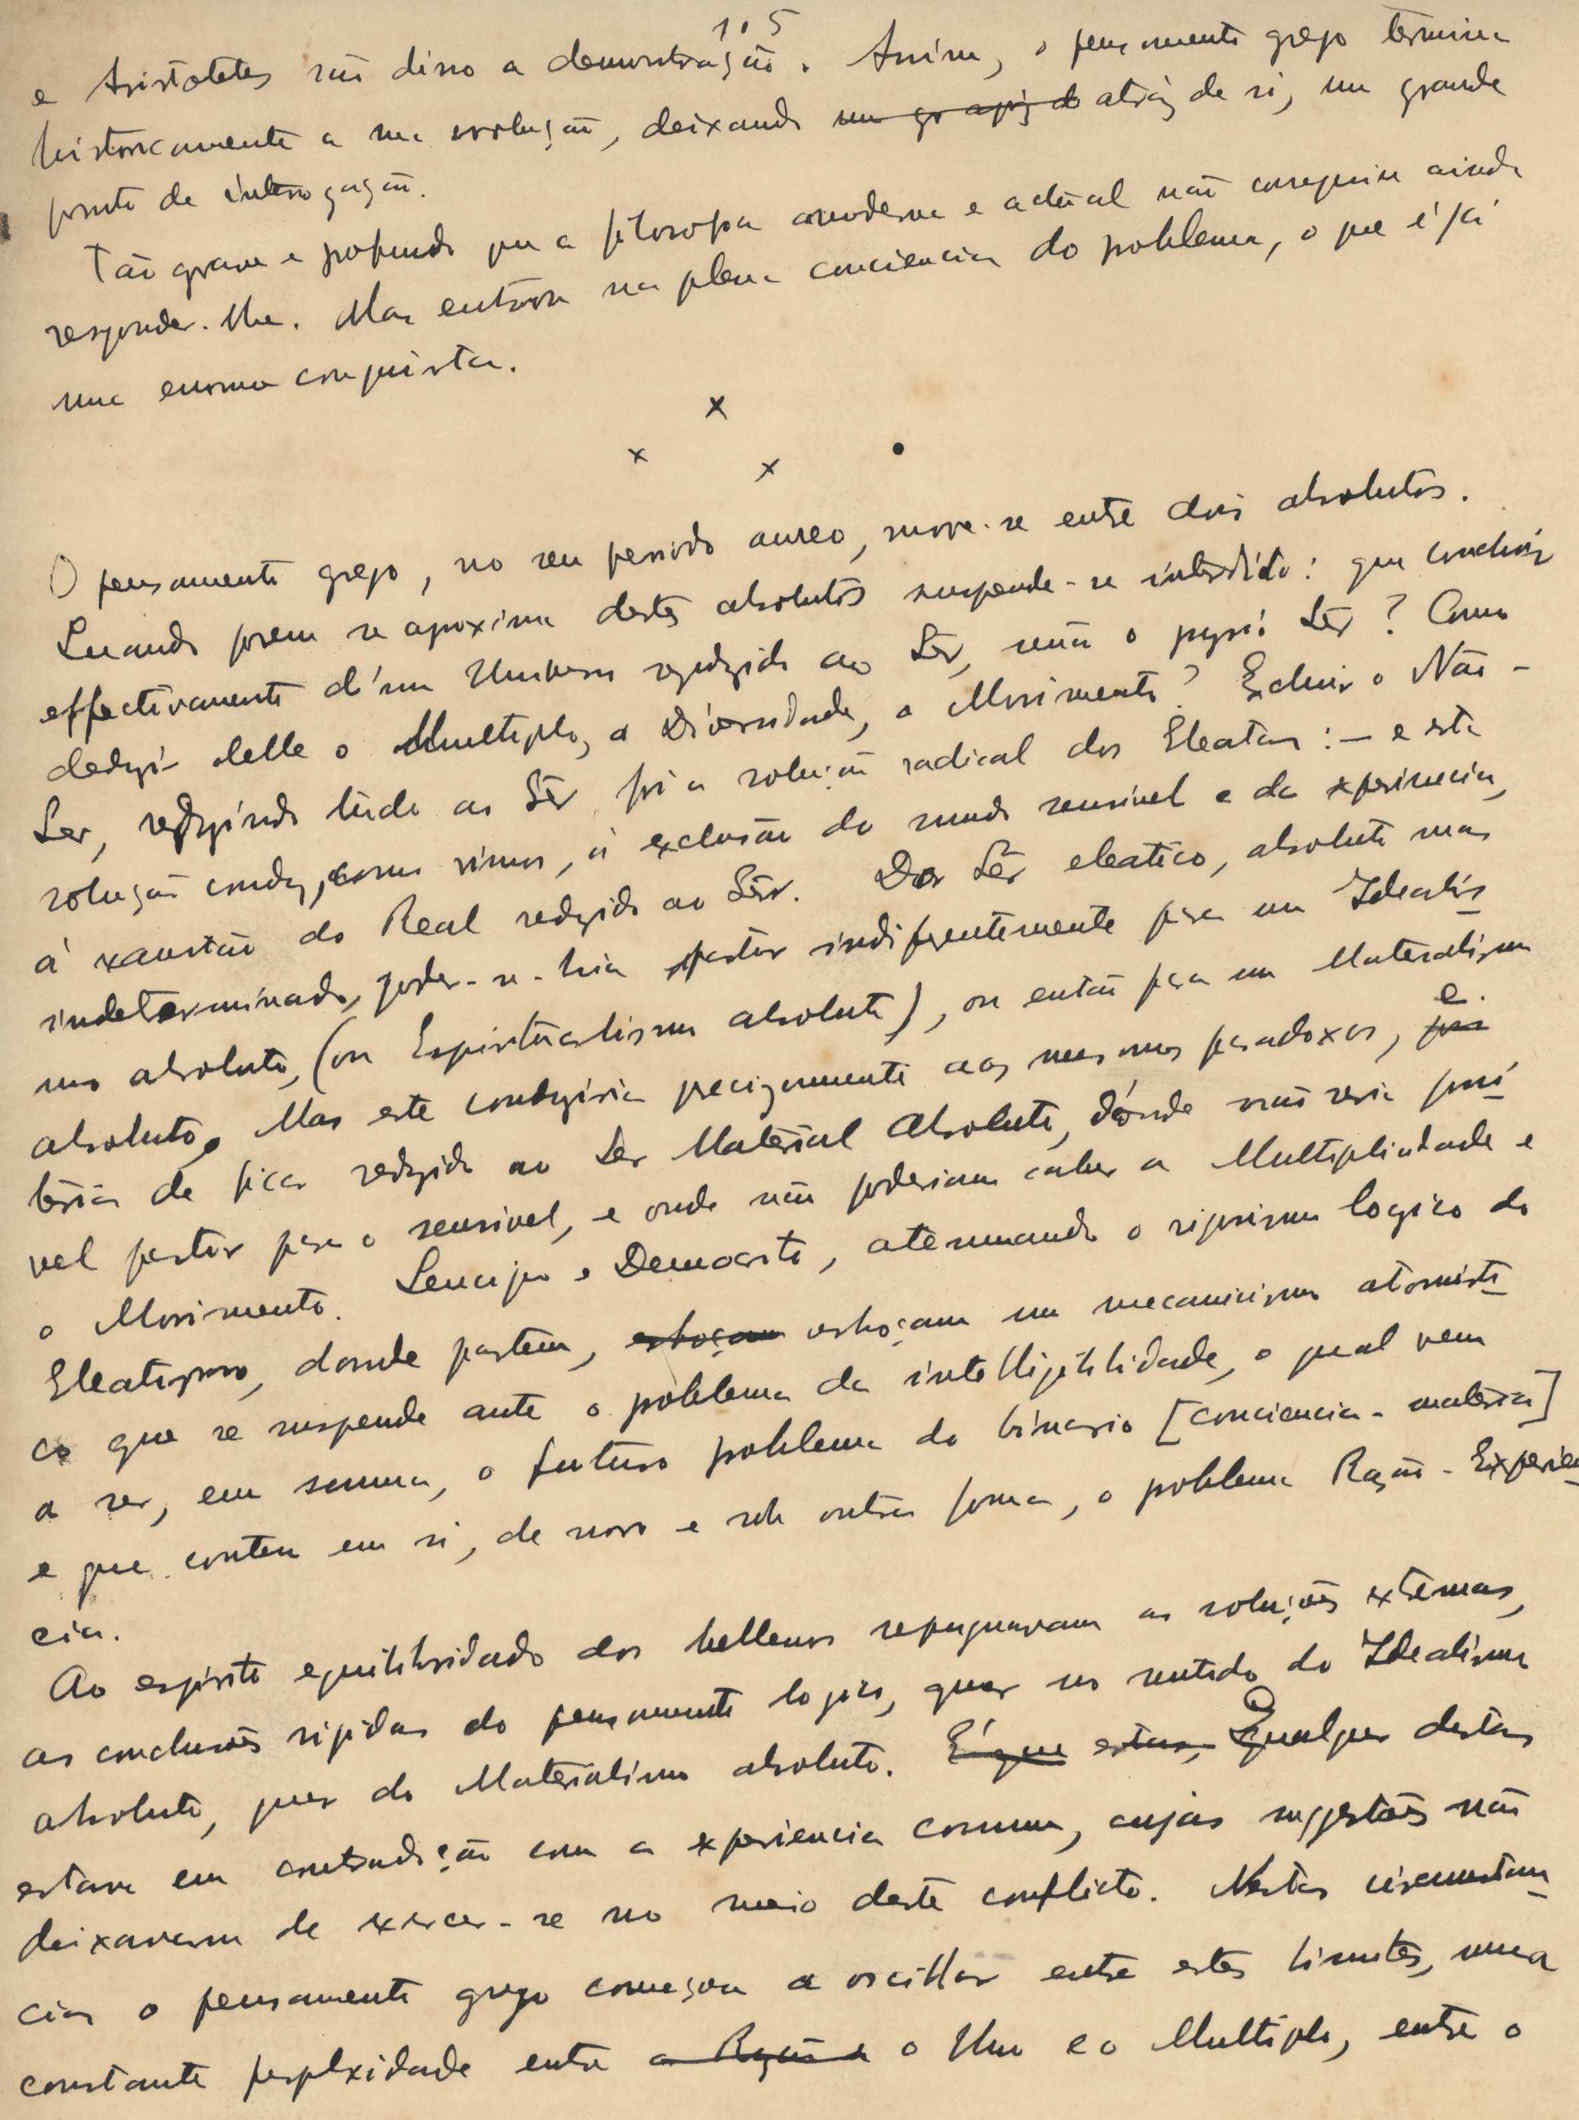 105
e Aristoteles são disso a demonstração. Assim, o pensamento grego termina
historicamente a sua evolução, deixando atráz de si, um grande
ponto de interrogação.
Tão grave e profundo que a filosofia moderna e actual não conseguiu ainda
responder-lhe. Mas entrou na plena conciencia do problema, o que é já
uma enorme conquista.
x
x x
O pensamento grego, no seu periodo aureo, move-se entre dois absolutos.
Quando porem se aproxima destes absolutos suspende-se interdito: que concluir
effectivamente d'um Universo reduzido ao Sêr, senão o proprio Sêr? Como
deduzir delle o Multiplo, a Diversidade, o Movimento? Excluir o Não-
Ser, reduzindo tudo ao Sêr foi a solução radical dos Eleatas: — e esta
solução conduz, como vimos, á exclusão do mundo sensivel e da experiencia,
á exaustão do Real reduzido ao Sêr. Do Sêr eleatico, absoluto mas
indeterminado, poder-se-hia partir indiferentemente para um Idealis-
mo absoluto, (ou Espiritualismo absoluto), ou então para um Materialismo
absoluto. Mas este conduziria precizamente aos mesmos paradoxos, e
teria de ficar reduzido ao Ser Material Absoluto, dónde não seria possi-
vel partir para o sensivel, e onde não poderiam caber a Multiplicidade e
o Movimento. Leucipo e Democrito, atenuando o rigorismo logico do
Eleatismo, donde partem, esboçam um mecanicismo atomisti-
co que se suspende ante o problema da intelligibilidade, o qual vem
a ser, em summa, o futuro problema do binario [conciencia-materia]
e que contem em si, de novo e sob outra forma, o problema Razão-Experien-
cia.
Ao espirito equilibridado dos hellenos repugnavam as soluções extremas,
as conclusões rigidas do pensamento logico, quer no sentido do Idealismo
absoluto, quer do Materialismo absoluto. Qualquer destas
estava em contradição com a experiencia comum, cujas sugestões não
deixavam de exercer-se no meio deste conflicto. Nestas circumstan-
cias o pensamento grego começou a oscillar entre estes limites, numa
constante perplexidade entre o Uno e o Multiplo, entre o